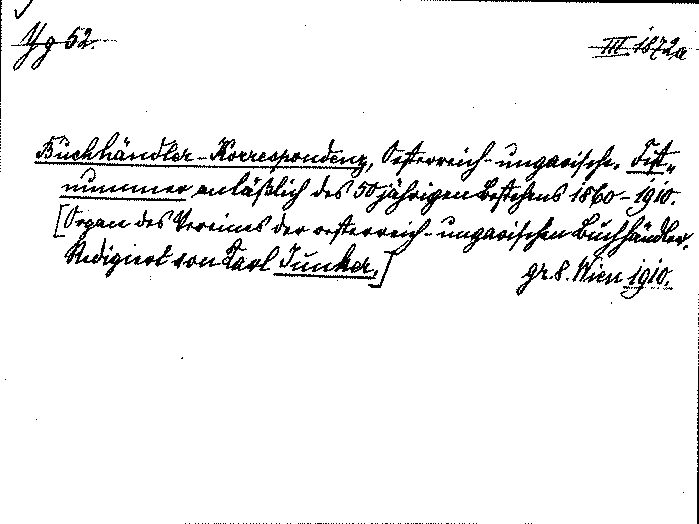 Yg 52.
III. 1872a
Buchhändler-Korrespondenz, Oesterreich-ungarische. Fest-
nummer anläßlich des 50jährigen Bestehens 1860-1910.
[Organ des Vereines der oesterreich-ungarischen Buchhändler.
Redigiert von Karl Junker.]
gr. 8. Wien 1910.